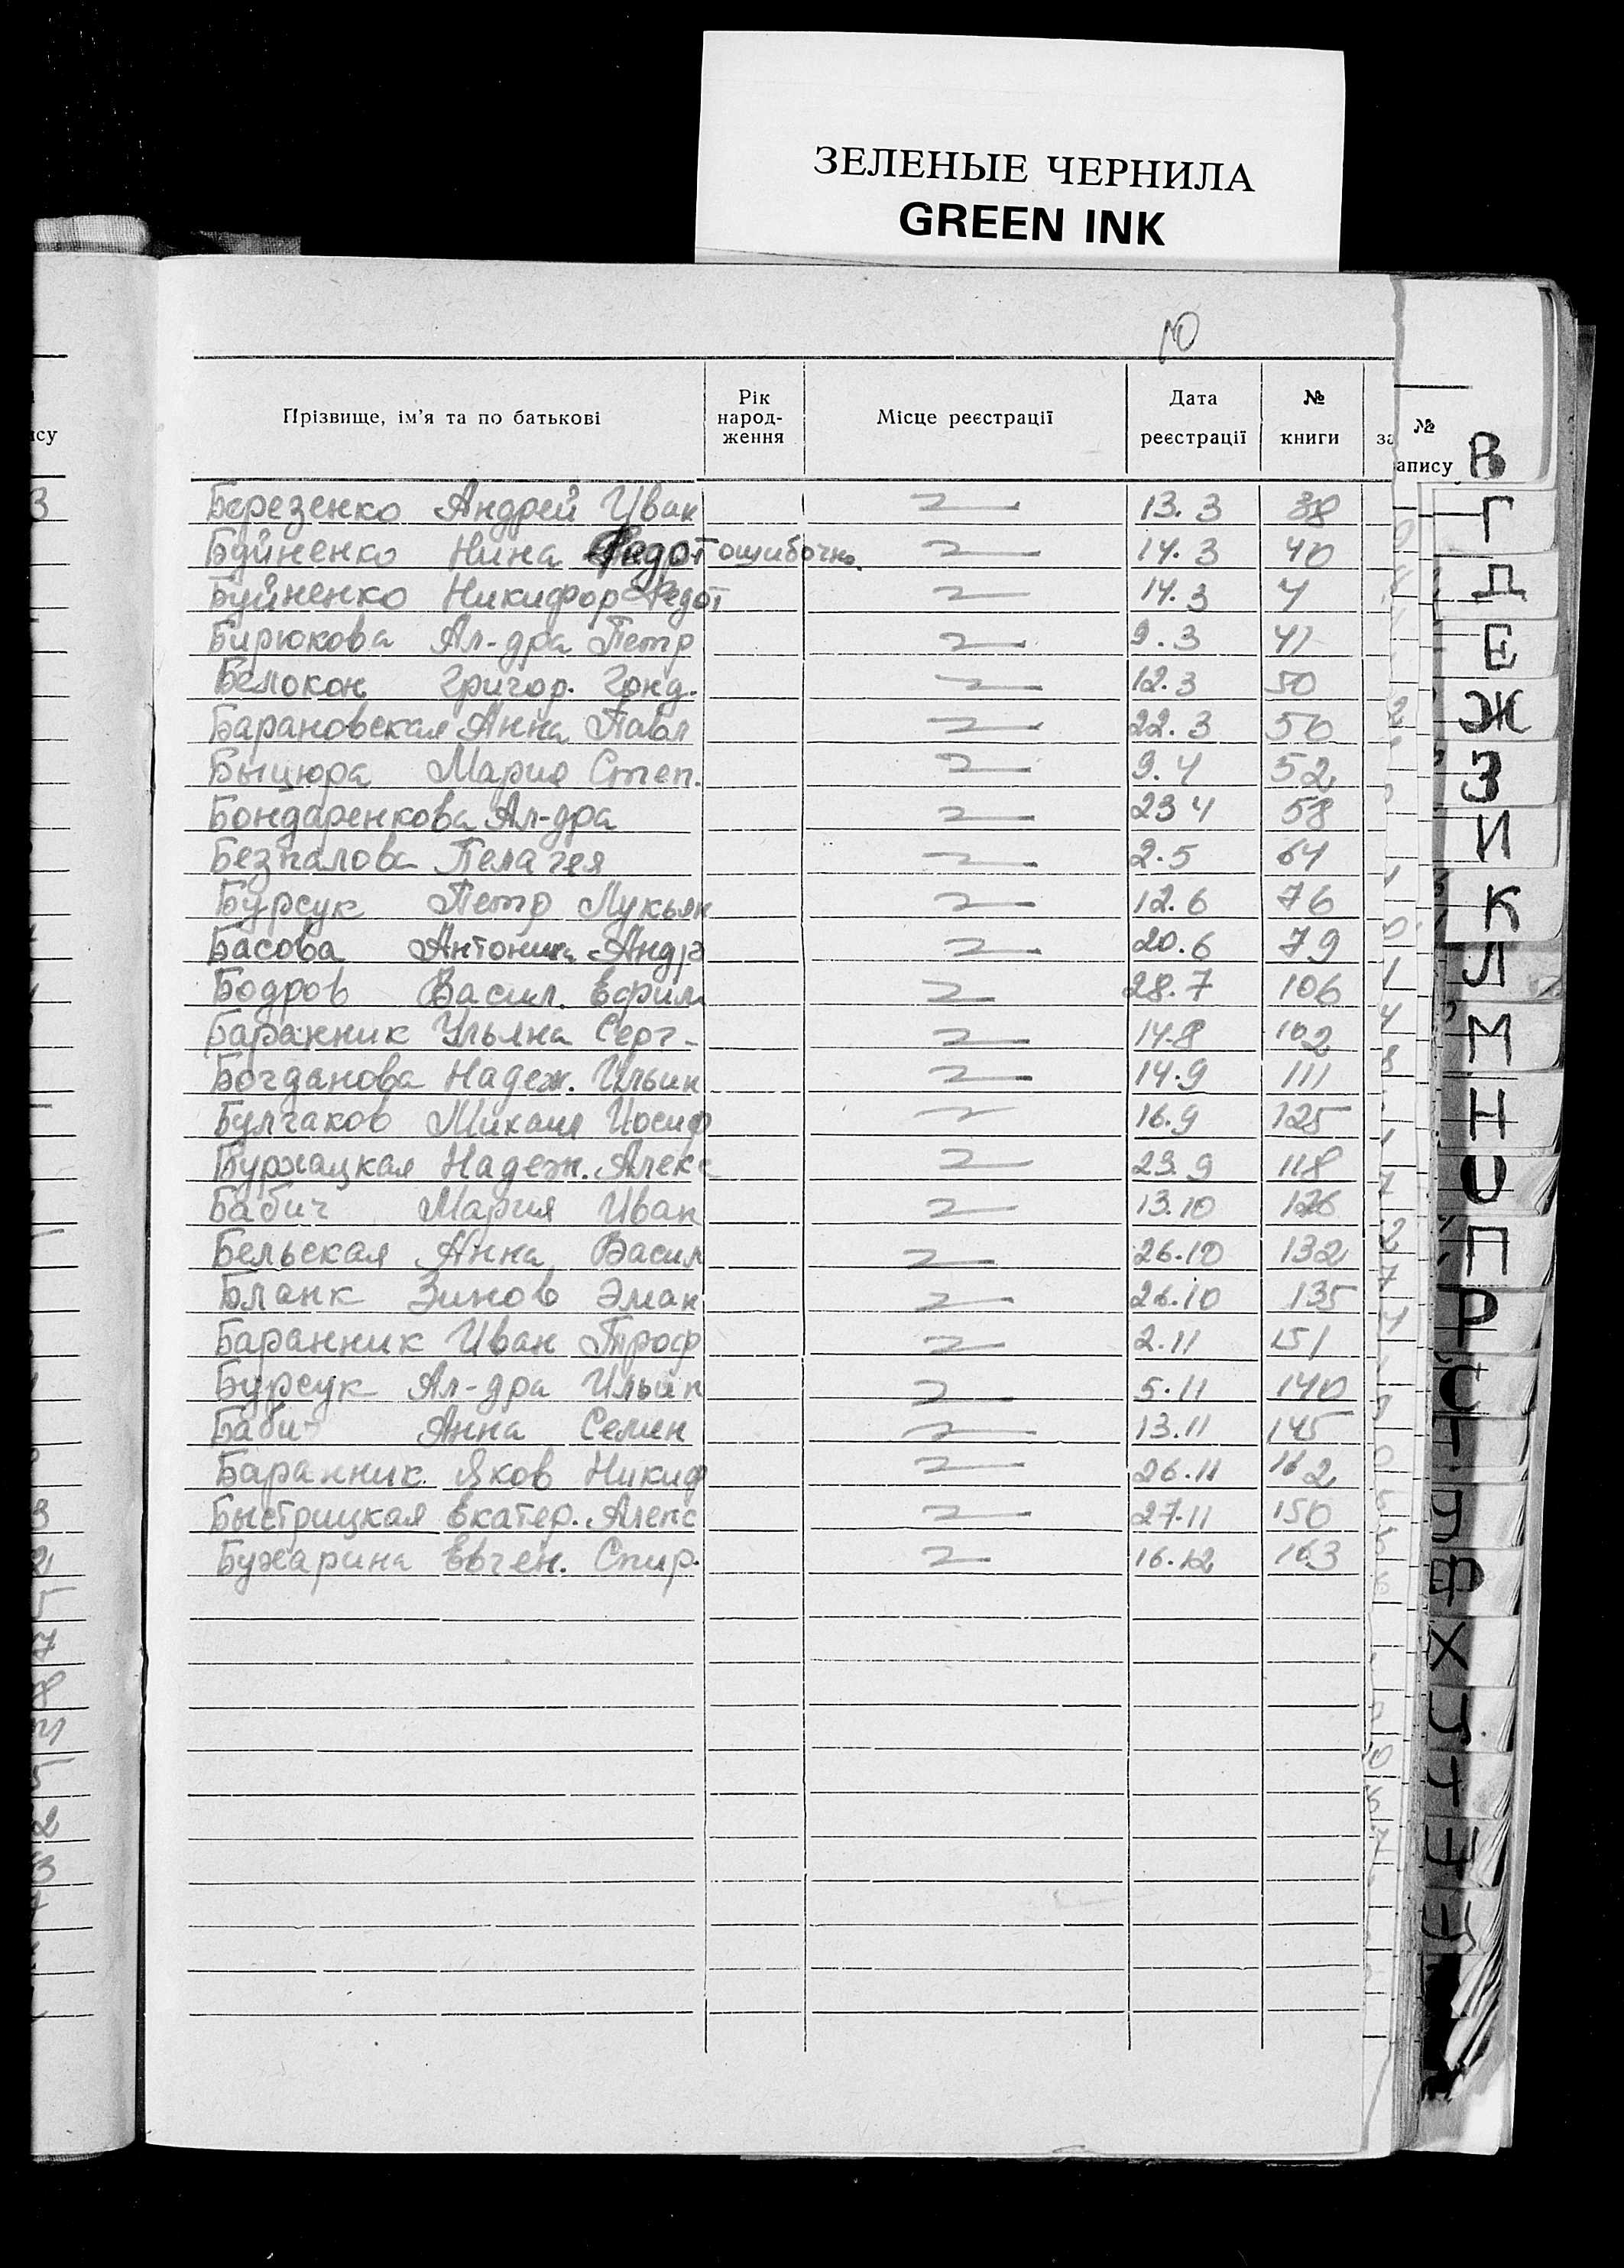 ЗЕЛЕНЫЕ ЧЕРНИЛА
GREEN INK
10
Прізвище, ім'я та по батькові Рік народ-ження Місце реєстрації Дата реєстрації № книги
№ апису
Березенко Андрей Иван 13.3 38
Буйненко Нина Федот ошибочно. 14.3 40
Буйненко Никифор Федот 14.3 4
Бирюкова Ал-дра Петр 9.3 41
Белокон Григор. Гонд. 12.3 50
Барановская Анна Павл 22.3 50
Быцюра Мария Степ. 9.4 52
Бондаренкова Ал-дра 23 4 58
Безпалова Пелагея 2.5 64
Бурсук Петр Лукьян 12.6 76
Басова Антонина Андр 20.6 79
Бодров Васил. Ефим 28.7 106
Баранник Ульяна Серг- 14.8 102
Богданова Надеж. Ильин 14.9 111
Булгаков Михаил Иосиф 16.9 125
Буржацкая Надеж. Алекс 23.9 118
Бабич Мария Иван 13.10 126
Бельская Анна Васил 26.10 132
Бланк Зинов Эман 26.10 135
Баранник Иван Троф 2.11 151
Бурсук Ал-дра Ильин 5.11 140
Бабич Анна Семен 13.11 145
Баранник Яков Никиф 26.11 162
Быстрицкая Екатер. Алекс 27.11 150
Бухарина Евген. Спир. 16.12 163
В
Г
Д
Е
Ж
З
И
К
Л
М
Н
О
П
Р
С
Т
У
Ф
Х
Ц
Ч